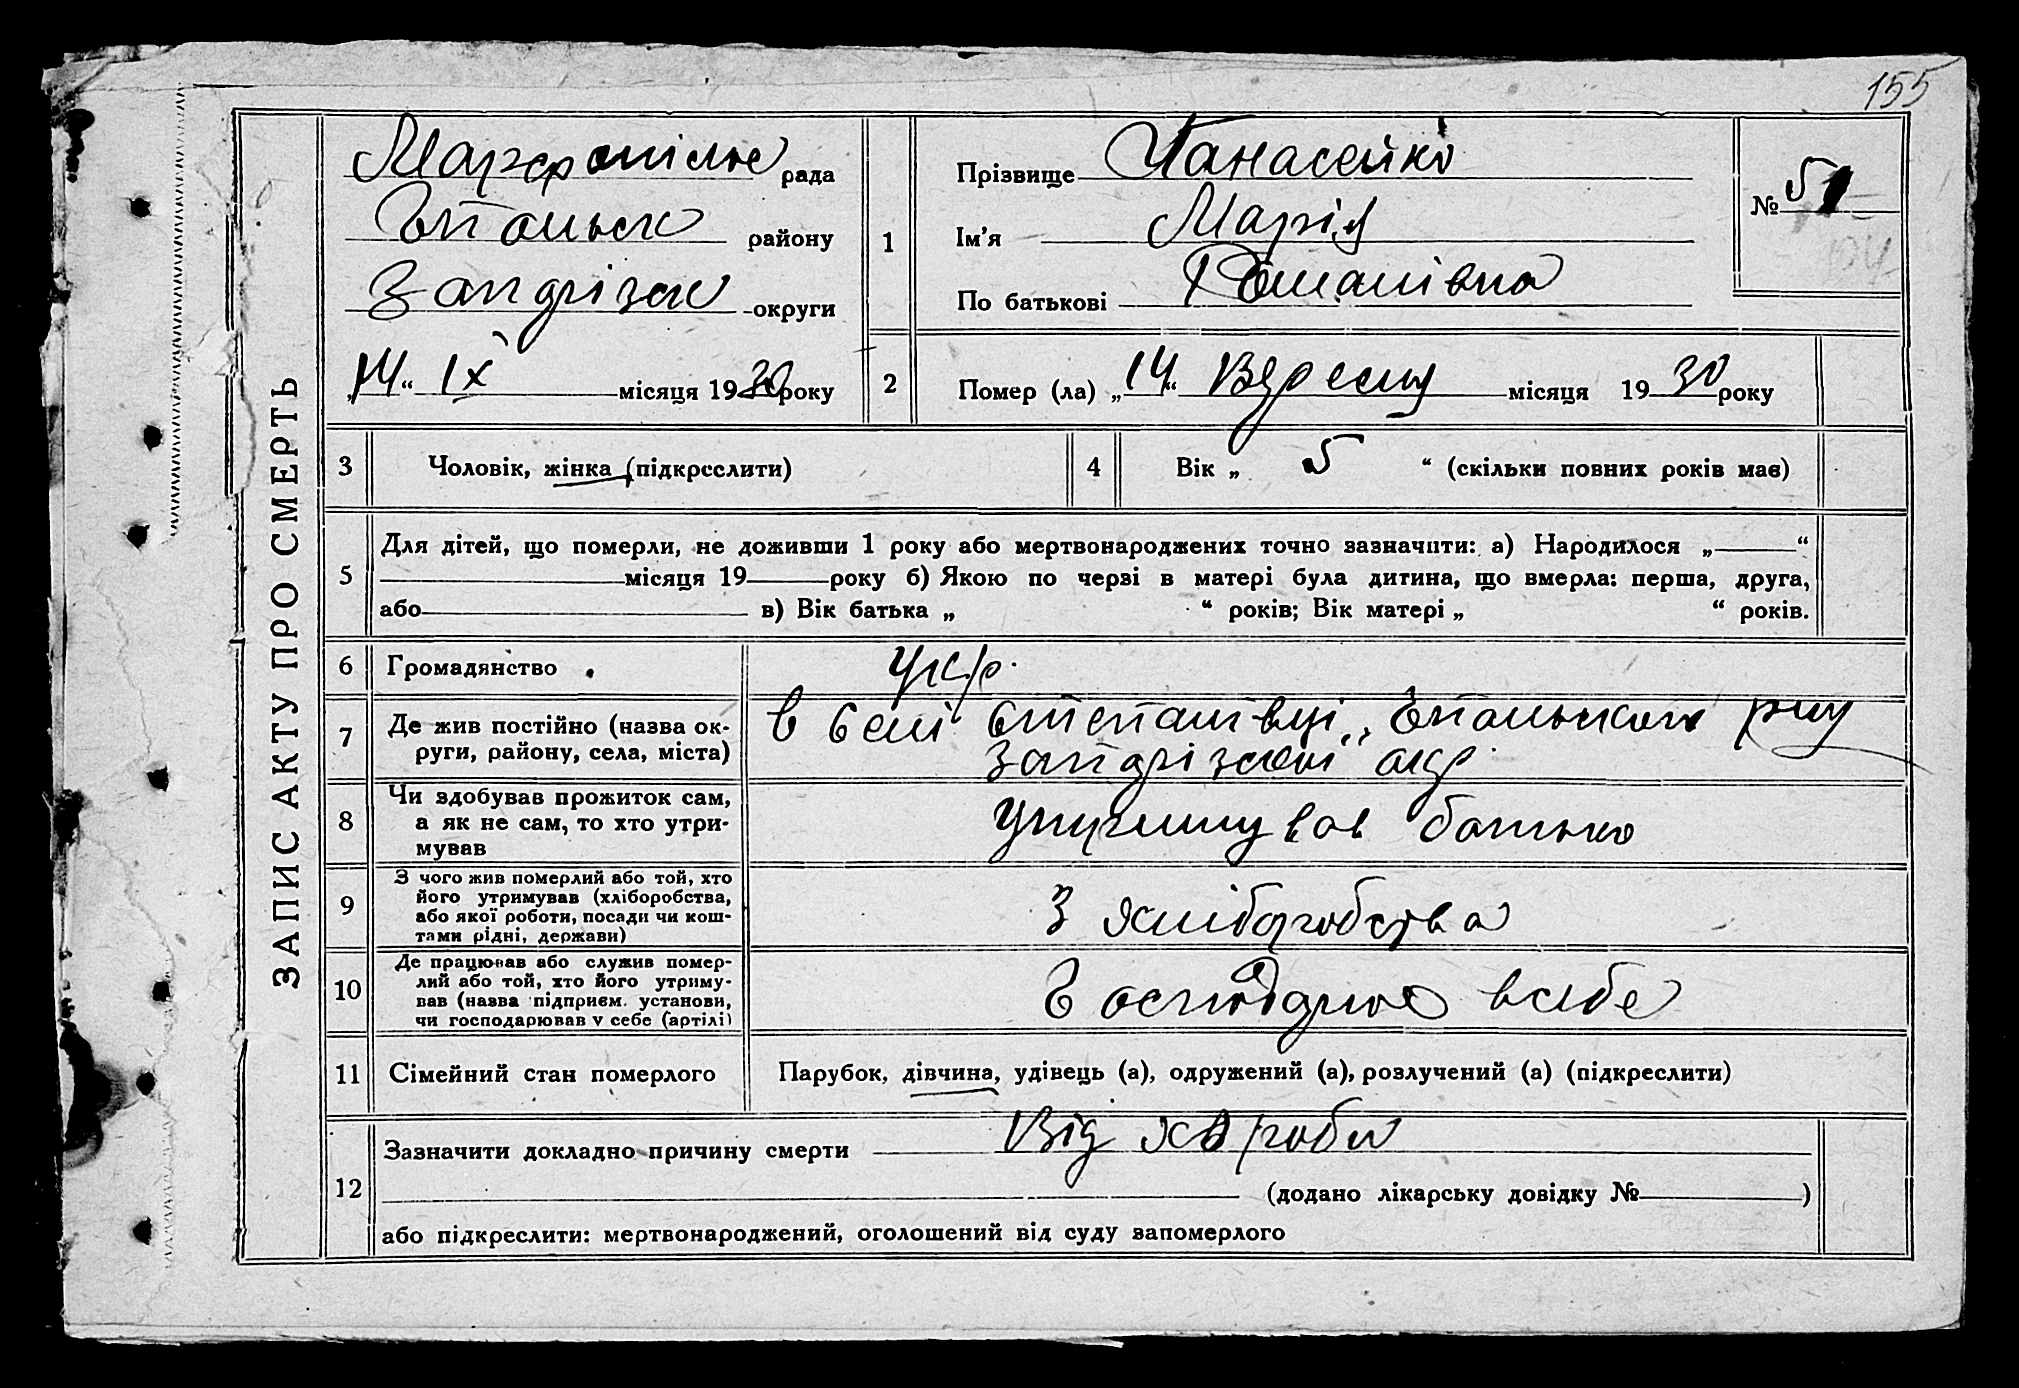 155
ЗАПИС АКТУ ПРО СМЕРТЬ
Марфопільс рада
Гпольск району
Запорізск округи
„14“ IX місяця 1930 року
1
Прізвище Панасейко
Ім'я Марія
По батькові Романівна
№ 51
2
Помер (ла) „14“ Вересня місяця 1930 року
3
Чоловік, жінка (підкреслити)
4
Вік „ 5 “ (скільки повних років має)
5
Для дітей, що померли, не доживши 1 року або мертвонароджених точно зазначити: а) Народилося „ “
місяця 19 року б) Якою по черзі в матері була дитина, що вмерла: перша, друга,
або в) Вік батька „ “ років; Вік матері „ “ років.
6
Громадянство
укр.
7
Де жив постійно (назва ок-
руги, району, села, міста)
в селі Степанівці, Гпольського р-ну
Запорізської окр.
8
Чи здобував прожиток сам,
а як не сам, то хто утри-
мував
утримував батько
9
З чого жив померлий або той, хто
його утримував (хліборобства,
або якої роботи, посади чи кош-
тами рідні, держави)
З хліборобства
10
Де працював або служив помер-
лий або той, хто його утриму-
вав (назва підприєм. установи,
чи господарював у себе (артілі)
Господрює в себе
11
Сімейний стан померлого
Парубок, дівчина, удівець (а), одружений (а), розлучений (а) (підкреслити)
12
Зазначити докладно причину смерти Від хороби
(додано лікарську довідку № )
або підкреслити: мертвонароджений, оголошений від суду запомерлого